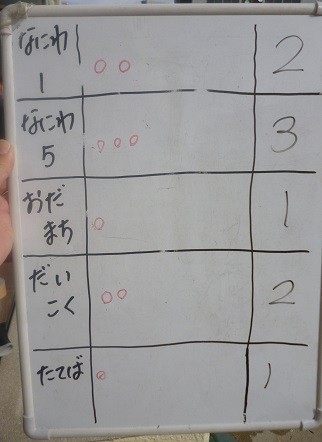 なにわ
1
○○
2
なにわ
5
○○○
3
おだ
まち
○
1
だい
こく
○○
2
たてば
○
1